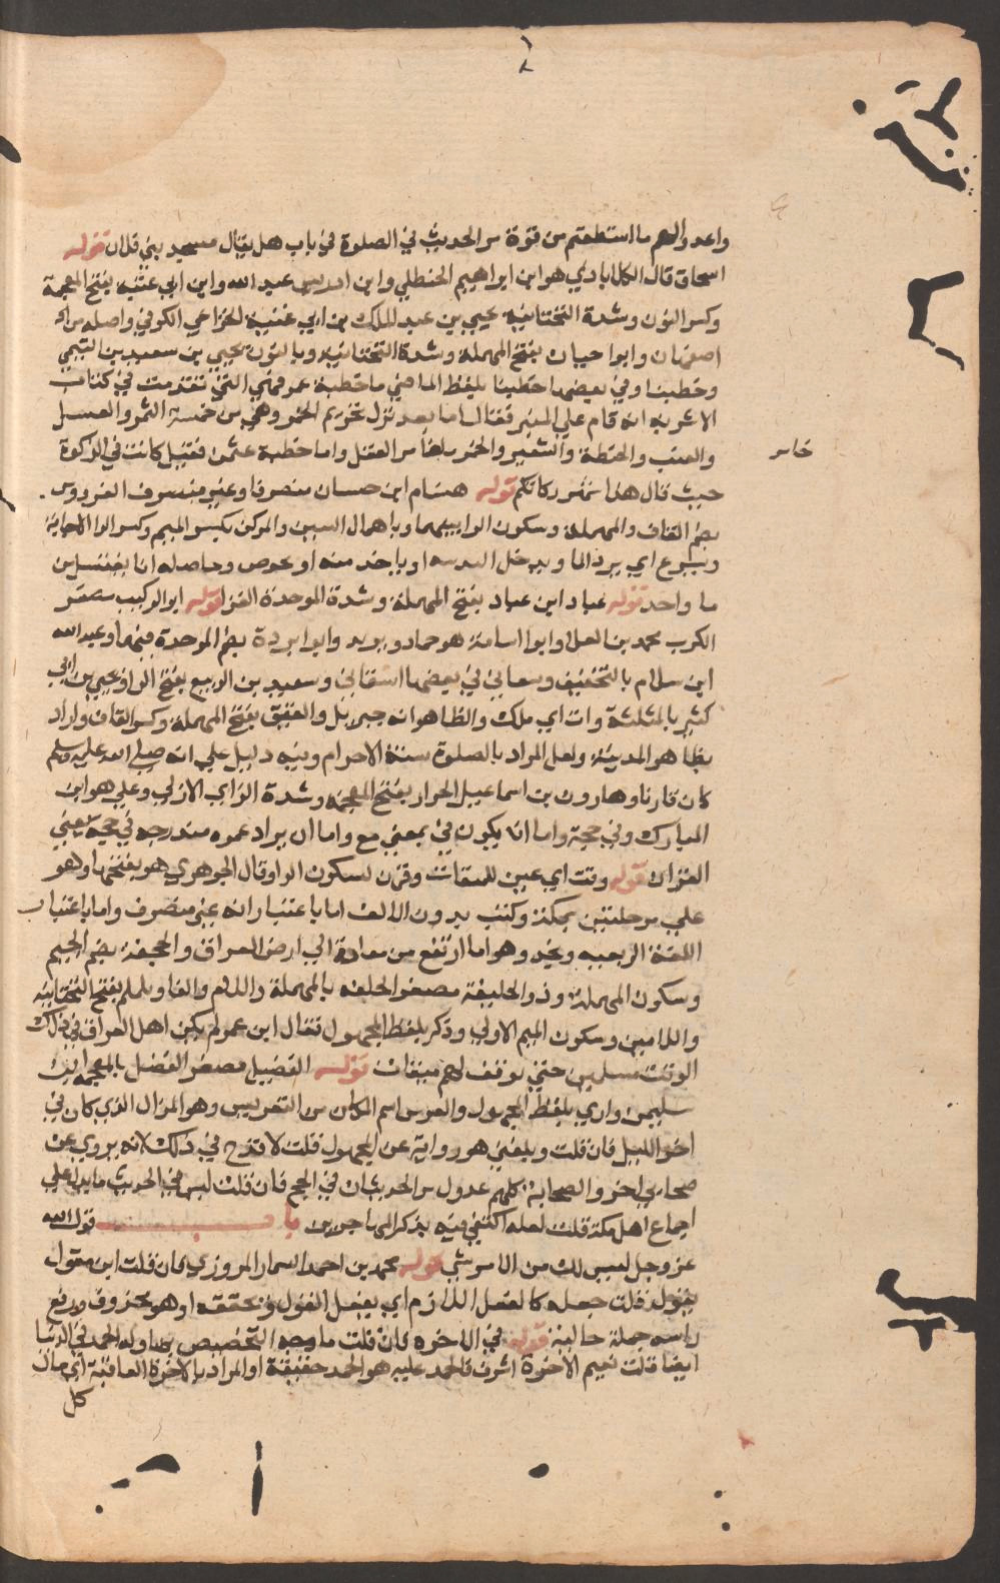 واعدوا لهم ما استطعتم من قوة مر الحديث في الصلوة في باب هل يقال مسجد بني فلان قوله
اسحاق قال الكلاباذي هو ابن ابراهيم الحنظلي وابن ادريس عبد الله وابن ابي عتبه بفتح المعجمة
وكسر النون وشدة التحتانيه يحيي بن عبد الملك بن ابي غنيه الخزاعي الكوفي واصله من
اصفهان وابوا حيان بفتح المهملة وشدة التحتانيه وبالنون يحيي بن سعيد بن التيمي
وخطبنا وفي بعضها خطبنا بلفظ الماضي ما خطبة عمر فهي التي تقدمت في كتاب
الاشربه انه قام علي المنبر فقال اما بعد نزل تحريم الخمر وهي من خمسة التمر والعسل
والعنب والحنطة والشعير والخمر ما خامر العقل واما خطبة عثمن فقيل كانت في الزكوة
خامر
حيث قال هذا شهر زكاتكم قوله هشام ابن حسان منصرفا وغير منصرف الفردوس
بضم القاف والمهملة وسكون الرا بينهما وباهمال السين والمركن بكسر الميم وكسر الرا الاجانة
ويشرع اي يرد الما ويدخل اليد منه او ياخذ منه او يحوص وحاصله انا نغتسل من
ما واحد قوله عباد ابن عباد بفتح المهملة وشدة الموحدة الفزا قوله ابو الركيب مصغر
الكرب محمد بن العلا وابوا اسامة هو حماد وبريد وابوا بردة بضم الموحدة فيهما وعبد الله
ابن سلام بالتخفيف وسقاني في بعضها اسقاني وسعيد بن الربيع بفتح الرا ويحيي بن ابي
كثير بالمثلثة وات اي ملك والظاهر انه جبريل والعقيق بفتح المهملة وكسر القاف واراد
بظاهر المدينة ولعل المراد بالصلوة سنة الاحرام وفيه دليل علي انه صلي الله عليه وسلم
كان قارنا وهارون بن اسماعيل الخزاز بفتح المعجمة وشدة الزاي الاولي وعلي هو ابن
المبارك وفي حجة واما ان يكون في بمعني مع واما ان يراد عمره مندرجه في حجه يعني
القران قوله وقت اي عين للميقات وقرن لسكون الرا وقال الجوهري هو بفتحها وهو
علي مرحلتين بمكة وكتب بدون الالف اما باعتبار انه غير منصرف واما باعتبار
اللغة الربعيه ونجد وهو ما ارتفع من تهامة الي ارض العراق والجحفة بضم الجيم
وسكون المهملة وذو الحليفة مصغر الحلفه بالمهملة واللام والفا ويلملم بفتح التحتانيه
واللامين وسكون الميم الاولي وذكر بلفظ المجهول فقال ابن عمر لم يكن اهل العراق في ذلك
الوقت مسلمين حتي يوقف لهم ميقات قوله الفضيل مصغر الفضل بالمعجمه ابن
سليمن واري بلفظ المجهول والعرس اسم المكان من التعريس وهو المنزل الذي كان في
اخر الليل فان قلت وبلغني هو رواية عن المجهول قلت لا قدح في ذلك لانه يروي عن
صحابي اخر والصحابة كلهم عدول مر الحديثان في الحج فان قلت ليس في الحديث ما يدل علي
اجماع اهل مكة قلت لعله اكتفي فيه بذكر المهاجرين باب قول الله
عز وجل ليس لك من الامر شي قوله محمد بن احمد السمار المروزي فان قلت ابن مقول
يقول قلت جعله كالفعل اللازم اي يفعل القول ويحققه او هو محذوف ورفع
راسه جملة حالية قوله في الاخره فان قلت ما وجه التخصيص بها وله الحمد في الدنيا
ايضا قلت نعيم الاخرة اشرف فالحمد عليه هو الحمد حقيقة او المراد بالاخرة العاقبة اي مال
كل